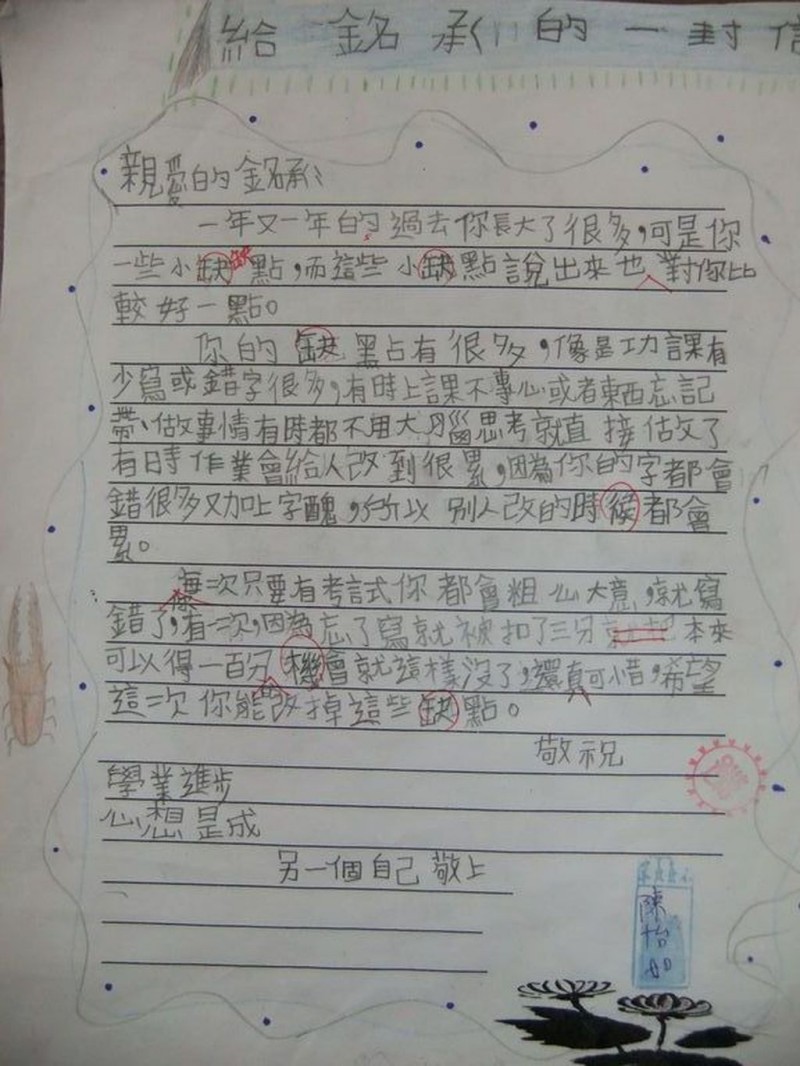 給銘承的一封信
親愛的銘承:
一年又一年的過去你長大了很多,可是你
一些小缺缺點,而這些小缺點說出來也對你比
較好一點。
你的缺點有很多,像是功課有
少寫或錯字很多,有時上課不專心或者東西忘記
帶、做事情有時都不用大腦思考就直接做了
有時作業會給人改到很累,因為你的字都會
錯很多又加上字醜,所以別人改的時候都會
累。
每次只要有考試你都會粗心大意,就寫
錯了,有一次,因為忘了寫就被扣了三分本來
可以得一百分機會就這樣沒了,還真可惜,希望
這一次你能改掉這些缺點。
敬祝
學業進步
心想是成
另一個自己敬上
陳怡如